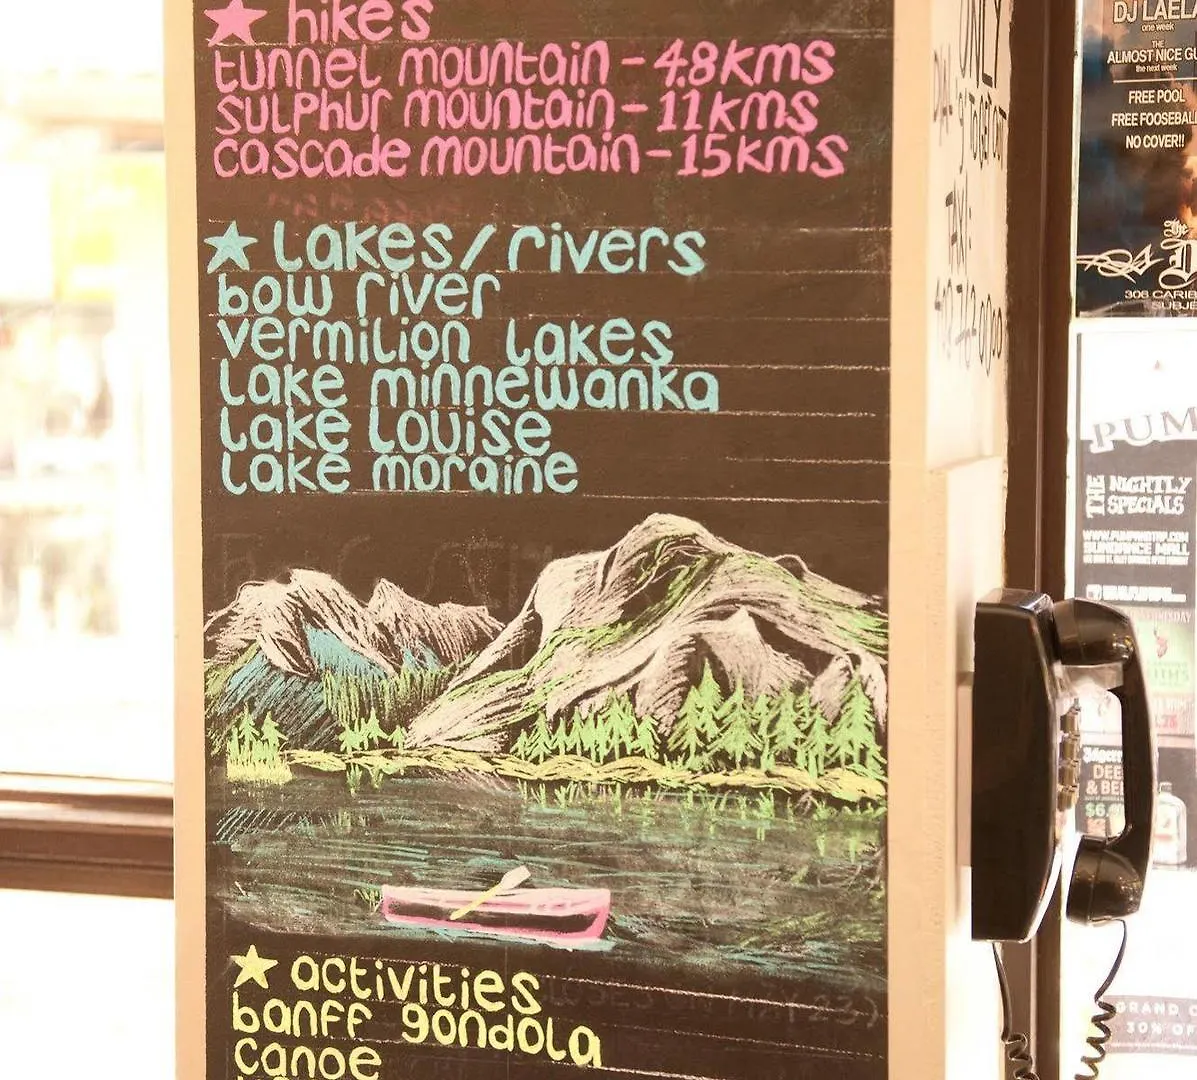 hikes
tunnel mountain - 4.8 kms
sulphur mountain - 11 kms
cascade mountain - 15 kms
lakes/rivers
bow river
vermilion lakes
lake minnewanka
lake louise
lake moraine
activities
banff gondola
canoe
ONLY
DIAL 9 TO GET OUT
TAXI:
DJ LAELA
one week
THE
ALMOST NICE GU
the next week
FREE POOL
FREE FOOSEBALL
NO COVER!!
The
306 CARIB
SUBJE
PUM
THE NIGHTLY
SPECIALS
SUNDANCE MALL
DEE
& BEE
$6.
GRAND
30% OF